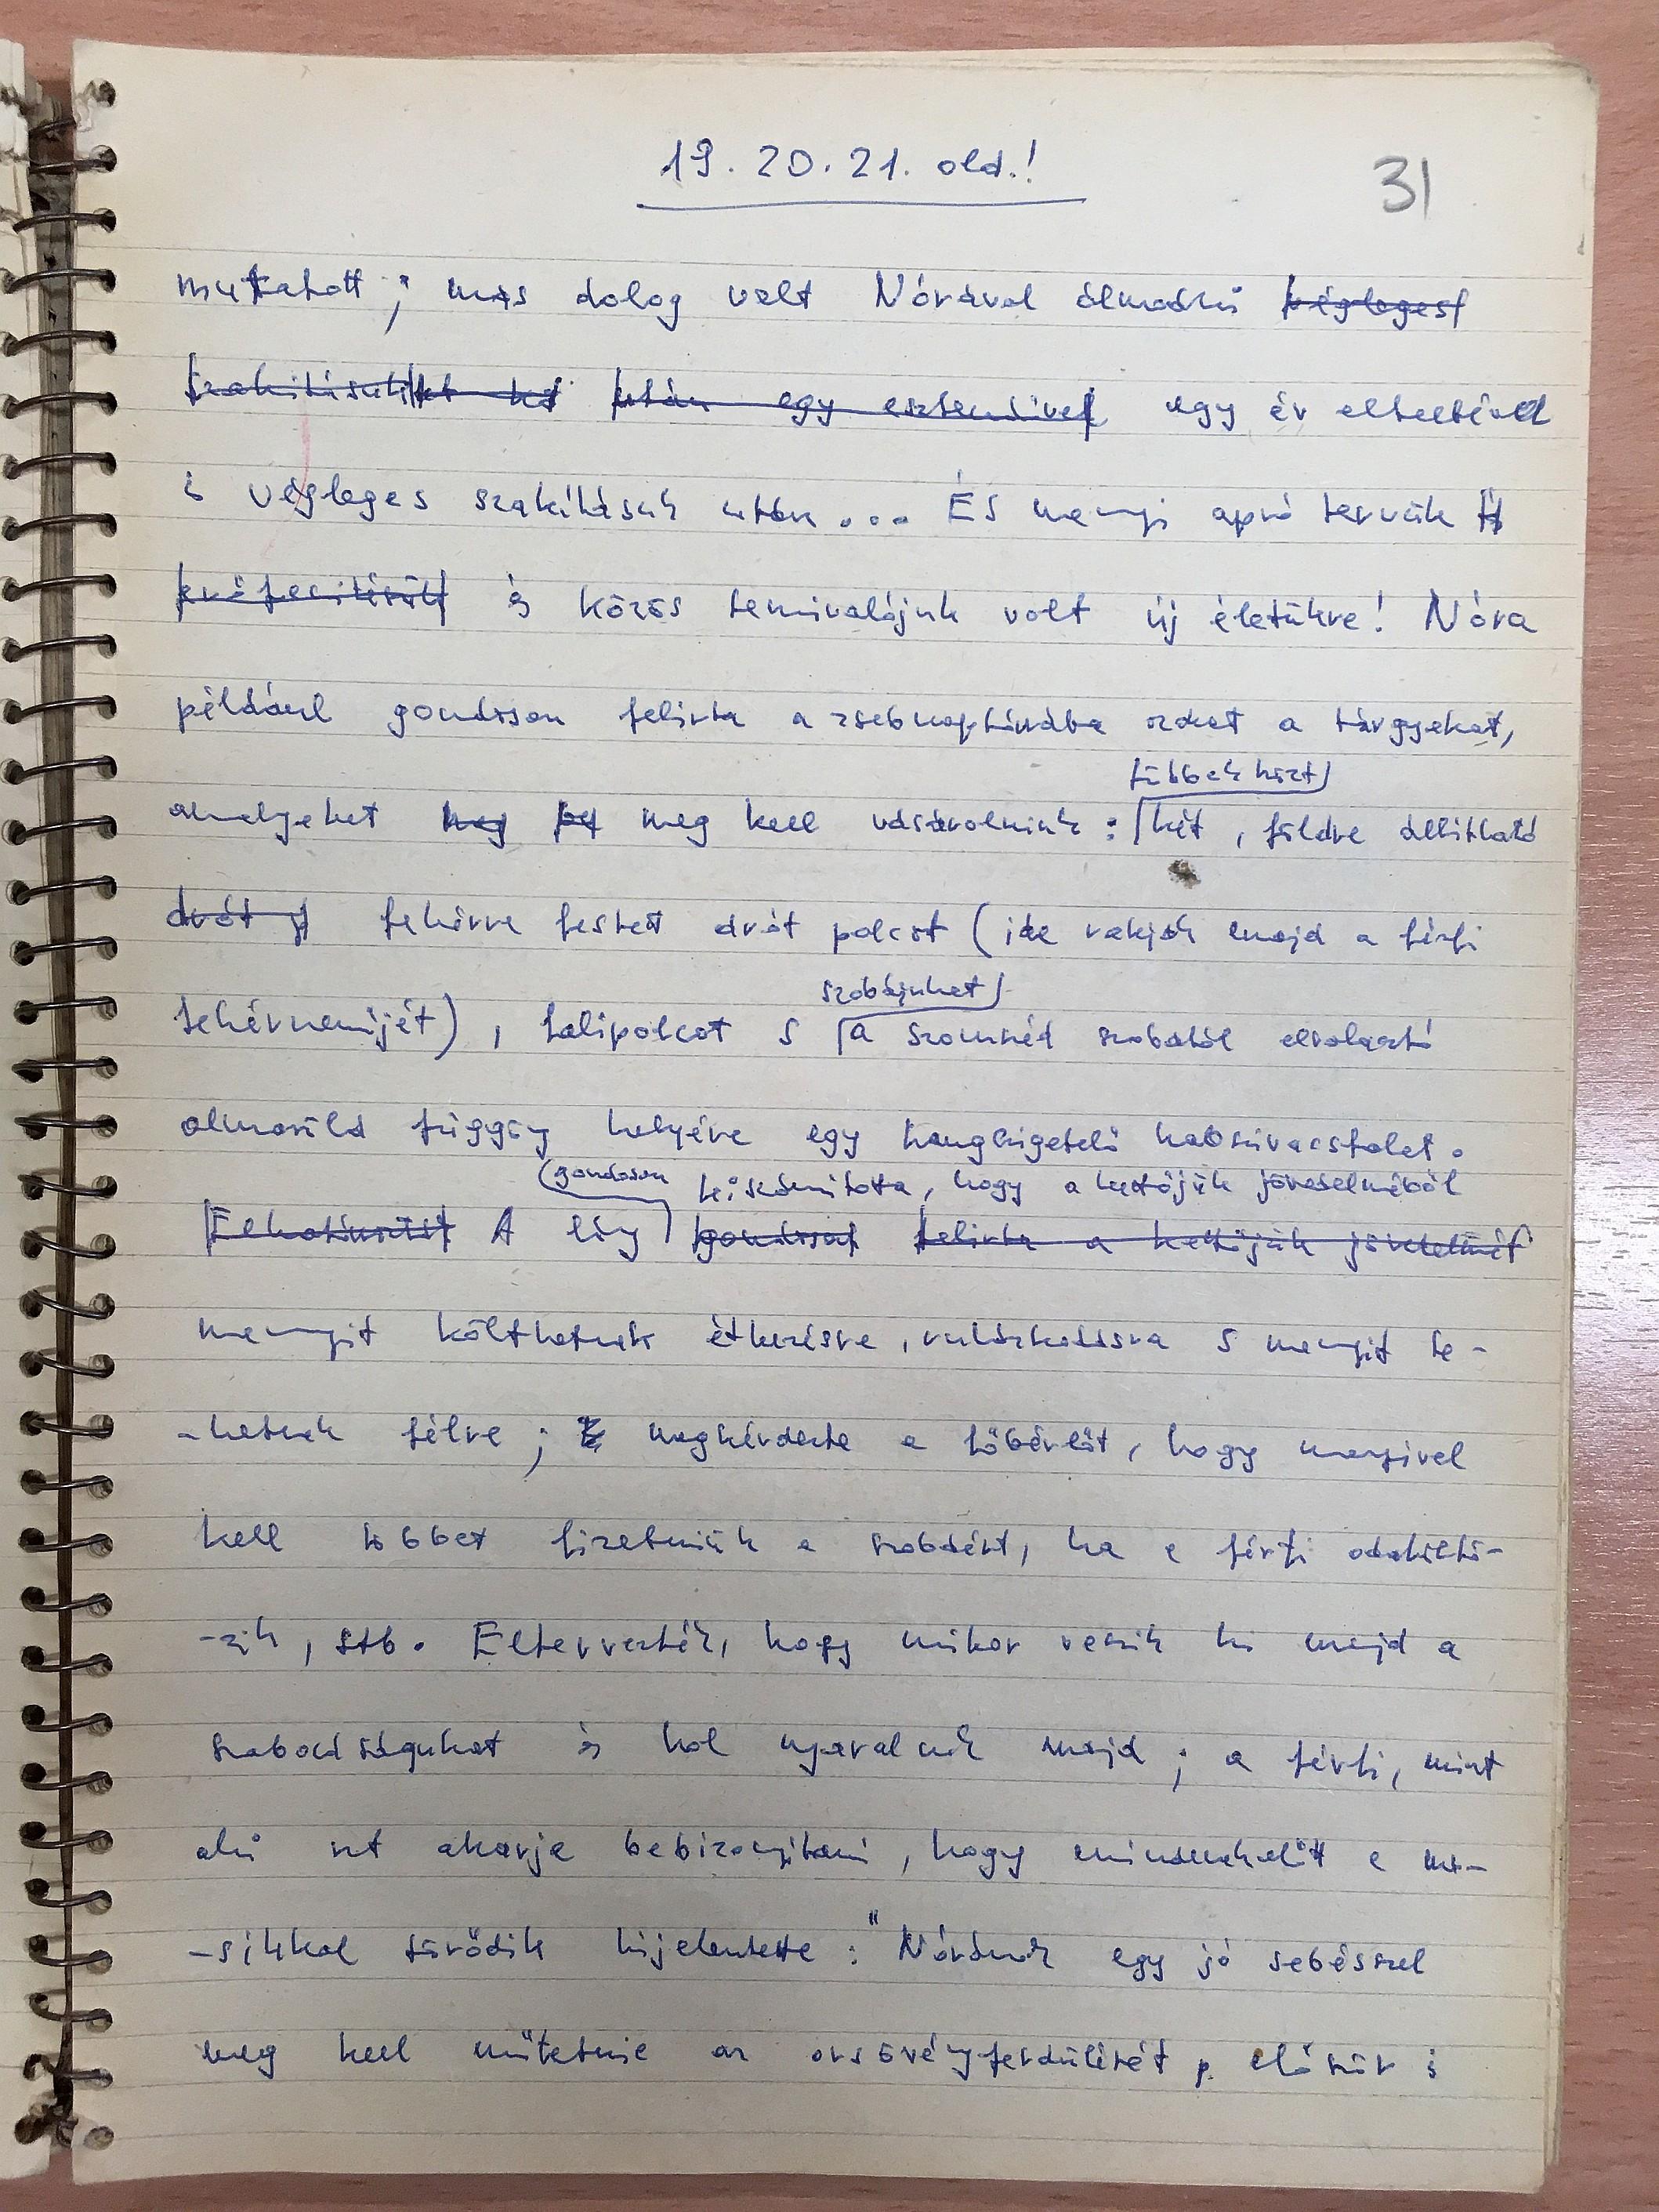 19. 20. 21. old.!
31
mutatott ; más dolog volt Nórával álmodni végleges
szakításuk után egy esztendővel egy év elteltével
s végleges szakításuk után... És mennyi apró tervük
és közös tennivalójuk volt új életükre! Nóra
például gondosan felirta a zsebnaptárába azokat a tárgyakat,
többek közt
amelyeket meg kell vásárolniuk : két , földre állítható
drót fehérre festett drót polcot ( ide rakják majd a férfi
szobájukat
fehérneműjét) , falipolcot s a szomszéd szobától elválasztó
almazöld függöny helyére egy hangszigetelő habszivacsfalat.
gondosan kiszámitotta, hogy a kettőjük jövedelméből
A lány gondosan felirta a kettőjük jövedelmét
mennyit költhetnek étkezésre, ruházkodásra s mennyit te-
-hetnek félre ; megkérdezte a főbérlőt, hogy mennyivel
kell többet fizetniük a szobáért, ha a férfi odaköltö-
-zik , stb. Eltervezték, hogy mikor veszik ki majd a
szabadságukat és hol nyaralnak majd ; a férfi, mint
aki azt akarja bebizonyítani , hogy mindenekelőtt a má-
-sikkal törődik kijelentette : "Nórának egy jó sebésszel
meg kell műtetnie az orrsövényferdülését, először is